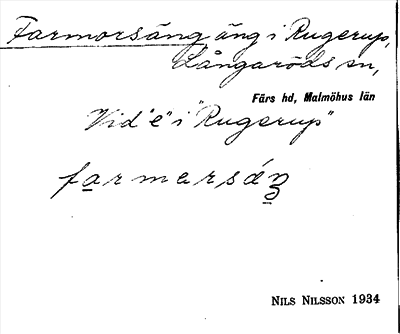 Farmorsäng äng i Rugerup,
Långaröds sn,
Färs hd, Malmöhus län
Vid "e" i "Rugerup"
farmersáŋ
NILS NILSSON 1934